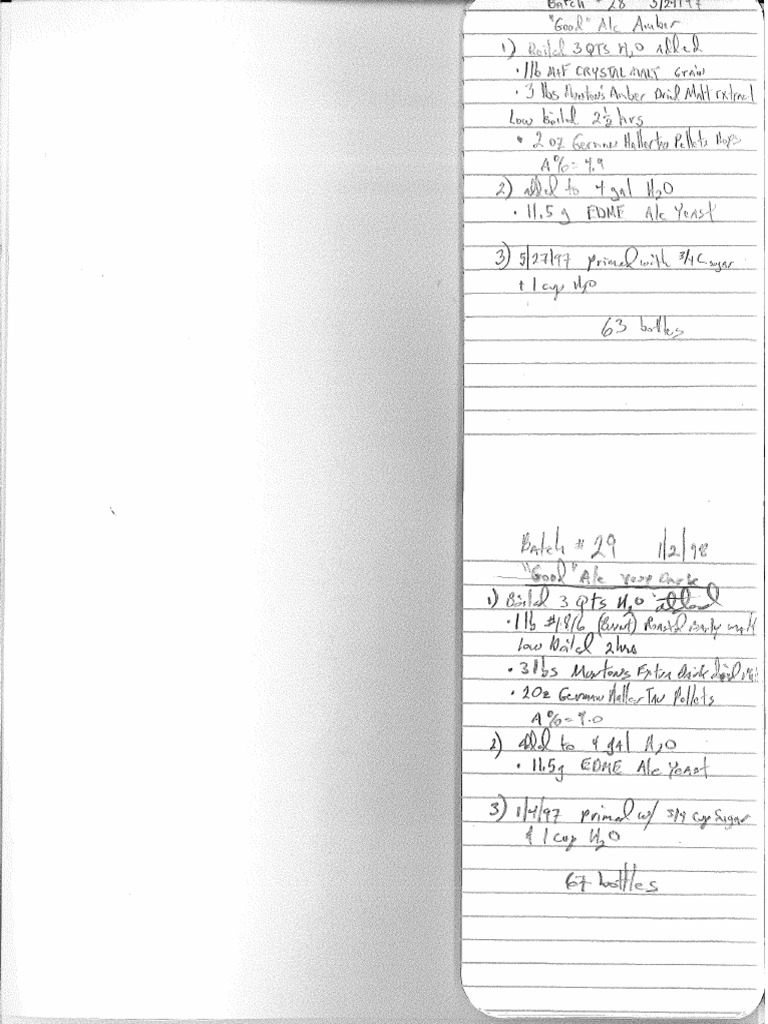 Batch # 28 5/24/97
"Good" Ale Amber
1) Boiled 3 QTS H2O added
• 1 lb M+F CRYSTAL MALT Grain
• 3 lbs Munton's Amber Dried Malt Extract
Low boiled 2 1/2 hrs
• 2 oz German Hallertau Pellets Hops
A% = 4.9
2) added to 4 gal H2O
• 11.5 g EDME Ale Yeast
3) 5/27/97 primed with 3/4 C sugar
+ 1 cup H2O
63 bottles
Batch # 29 1/2/98
"Good" Ale Very Dark
1) Boiled 3 QTS H2O added
• 1 lb (Burnt) Roasted Barly malt
Low Boiled 2 hrs
• 3 lbs Muntons Extra Dark dried
• 2 oz German Haller Tau Pellets
A% = 4.0
2) added to 4 gal H2O
• 11.5g EDME Ale Yeast
3) 1/4/97 primed w/ 3/4 cup Sugar
& 1 cup H2O
67 bottles